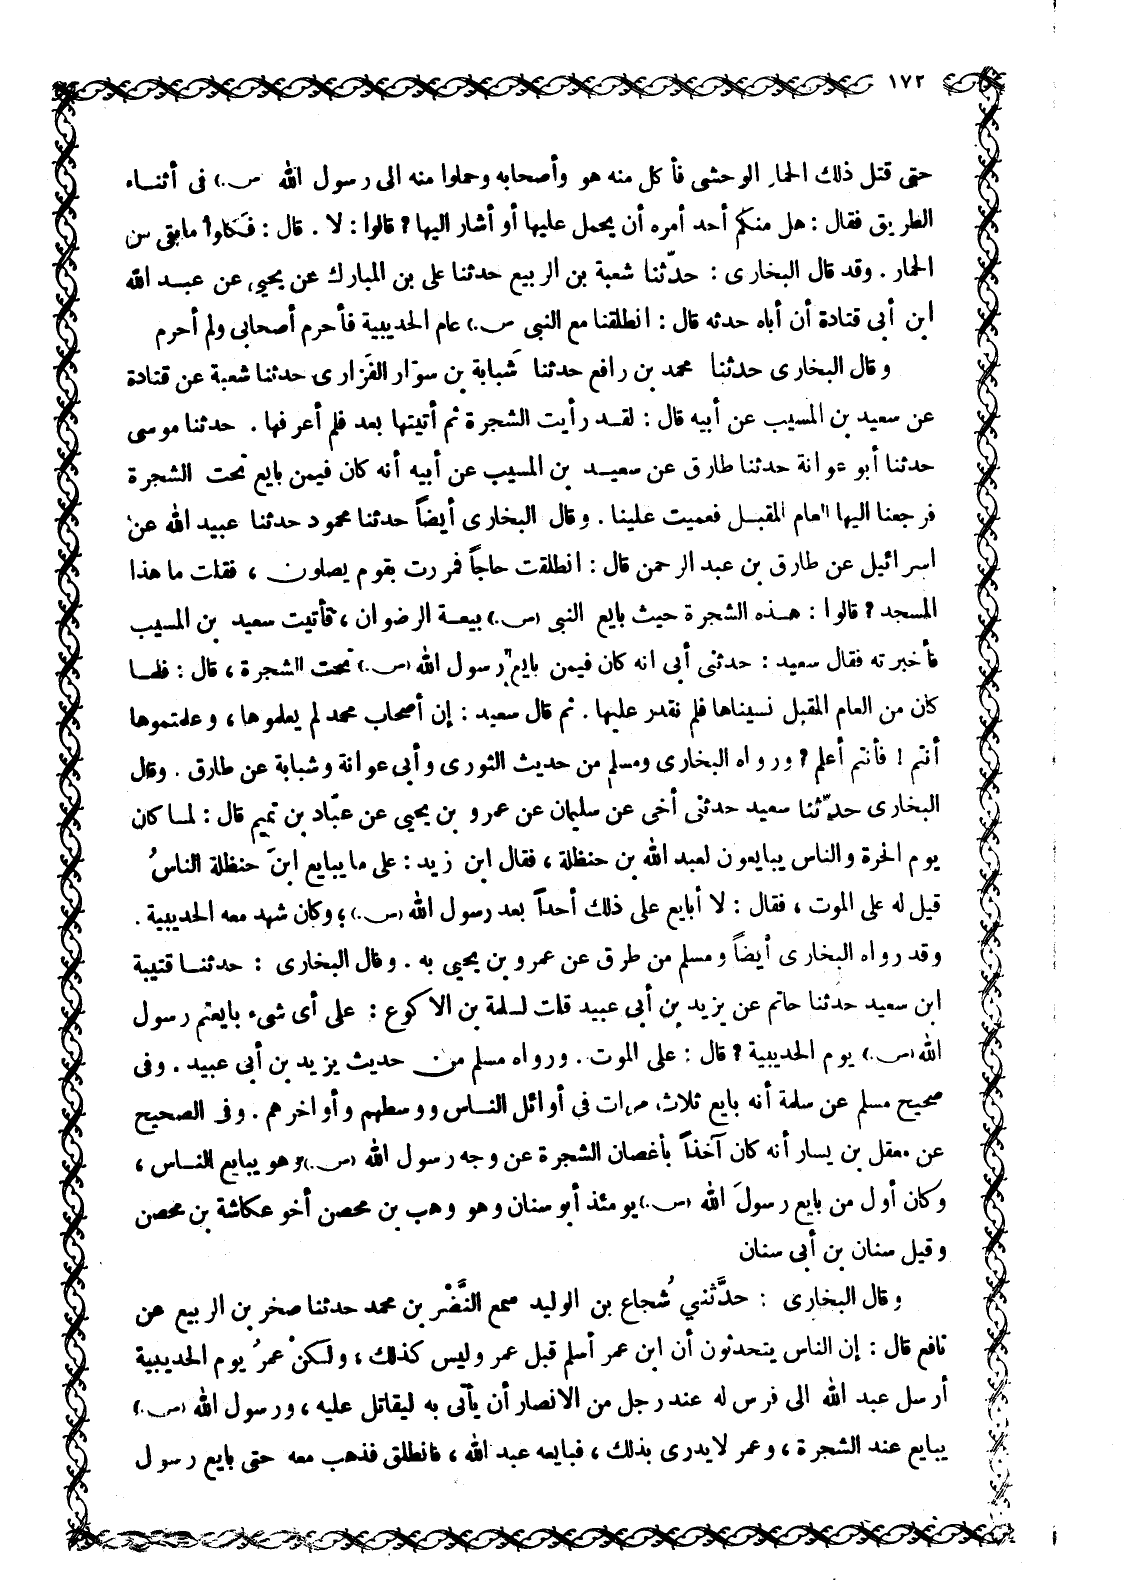 ١٧٢
حتى قتل ذلك الحمار الوحشى فأكل منه هو وأصحابه وحملوا منه الى رسول الله (ص.) فى أثناء
الطريق فقال : هل منكم أحد أمره أن يحمل عليها أو أشار اليها ؟ قالوا : لا . قال : فكلوا مابقى من
الحمار . وقد قال البخارى : حدّثنا شعبة بن الربيع حدثنا على بن المبارك عن يحيى عن عبد الله
ابن أبى قتادة أن أباه حدثه قال : انطلقنا مع النبى (ص.) عام الحديبية فأحرم أصحابى ولم أحرم
وقال البخارى حدثنا محمد بن رافع حدثنا شَبابة بن سوّار الفَزارى حدثنا شعبة عن قتادة
عن سعيد بن المسيب عن أبيه قال : لقد رأيت الشجرة ثم أتيتها بعد فلم أعرفها . حدثنا موسى
حدثنا أبو عوانة حدثنا طارق عن سعيد بن المسيب عن أبيه أنه كان فيمن بايع تحت الشجرة
فرجعنا اليها العام المقبل فعميت علينا . وقال البخارى أيضاً حدثنا محمود حدثنا عبيد الله عن
اسرائيل عن طارق بن عبد الرحمن قال : انطلقت حاجاً فمررت بقوم يصلون ، فقلت ما هذا
المسجد ؟ قالوا : هذه الشجرة حيث بايع النبى (ص.) بيعة الرضوان ، فأتيت سعيد بن المسيب
فأخبرته فقال سعيد : حدثنى أبى انه كان فيمن بايع رسول الله (ص.) تحت الشجرة ، قال : فلما
كان من العام المقبل نسيناها فلم نقدر عليها . ثم قال سعيد : إن أصحاب محمد لم يعلموها ، وعلمتموها
أنتم ! فأنتم أعلم ؟ ورواه البخارى ومسلم من حديث الثورى وأبى عوانة وشبابة عن طارق . وقال
البخارى حدّثنا سعيد حدثنى أخى عن سليمان عن عمرو بن يحيى عن عبّاد بن تميم قال : لما كان
يوم الحرة والناس يبايعون لعبد الله بن حنظلة ، فقال ابن زيد : على ما يبايع ابنَ حنظلة الناسُ
قيل له على الموت ، فقال : لا أبايع على ذلك أحداً بعد رسول الله (ص.) ؛ وكان شهد معه الحديبية .
وقد رواه البخارى أيضاً ومسلم من طرق عن عمرو بن يحيى به . وقال البخارى : حدثنا قتيبة
ابن سعيد حدثنا حاتم عن يزيد بن أبى عبيد قلت لسلمة بن الاكوع : على أى شىء بايعتم رسول
الله (ص.) يوم الحديبية ؟ قال : على الموت . ورواه مسلم من حديث يزيد بن أبى عبيد . وفى
صحيح مسلم عن سلمة أنه بايع ثلاث مرات فى أوائل الناس ووسطهم وأواخرهم . وفى الصحيح
عن معقل بن يسار أنه كان آخذاً بأغصان الشجرة عن وجه رسول الله (ص.) وهو يبايع الناس ،
وكان أول من بايع رسولَ الله (ص.) يومئذ أبو سنان وهو وهب بن محصن أخو عكاشة بن محصن
وقيل سنان بن أبى سنان
وقال البخارى : حدَّثني شُجاع بن الوليد سمع النَّضْر بن محمد حدثنا صخر بن الربيع عن
نافع قال : إن الناس يتحدثون أن ابن عمر أسلم قبل عمر وليس كذلك ، ولكنْ عمرُ يوم الحديبية
أرسل عبد الله الى فرس له عند رجل من الانصار أن يأتى به ليقاتل عليه ، ورسول الله (ص.)
يبايع عند الشجرة ، وعمر لايدرى بذلك ، فبايعه عبد الله ، فانطلق فذهب معه حتى بايع رسول